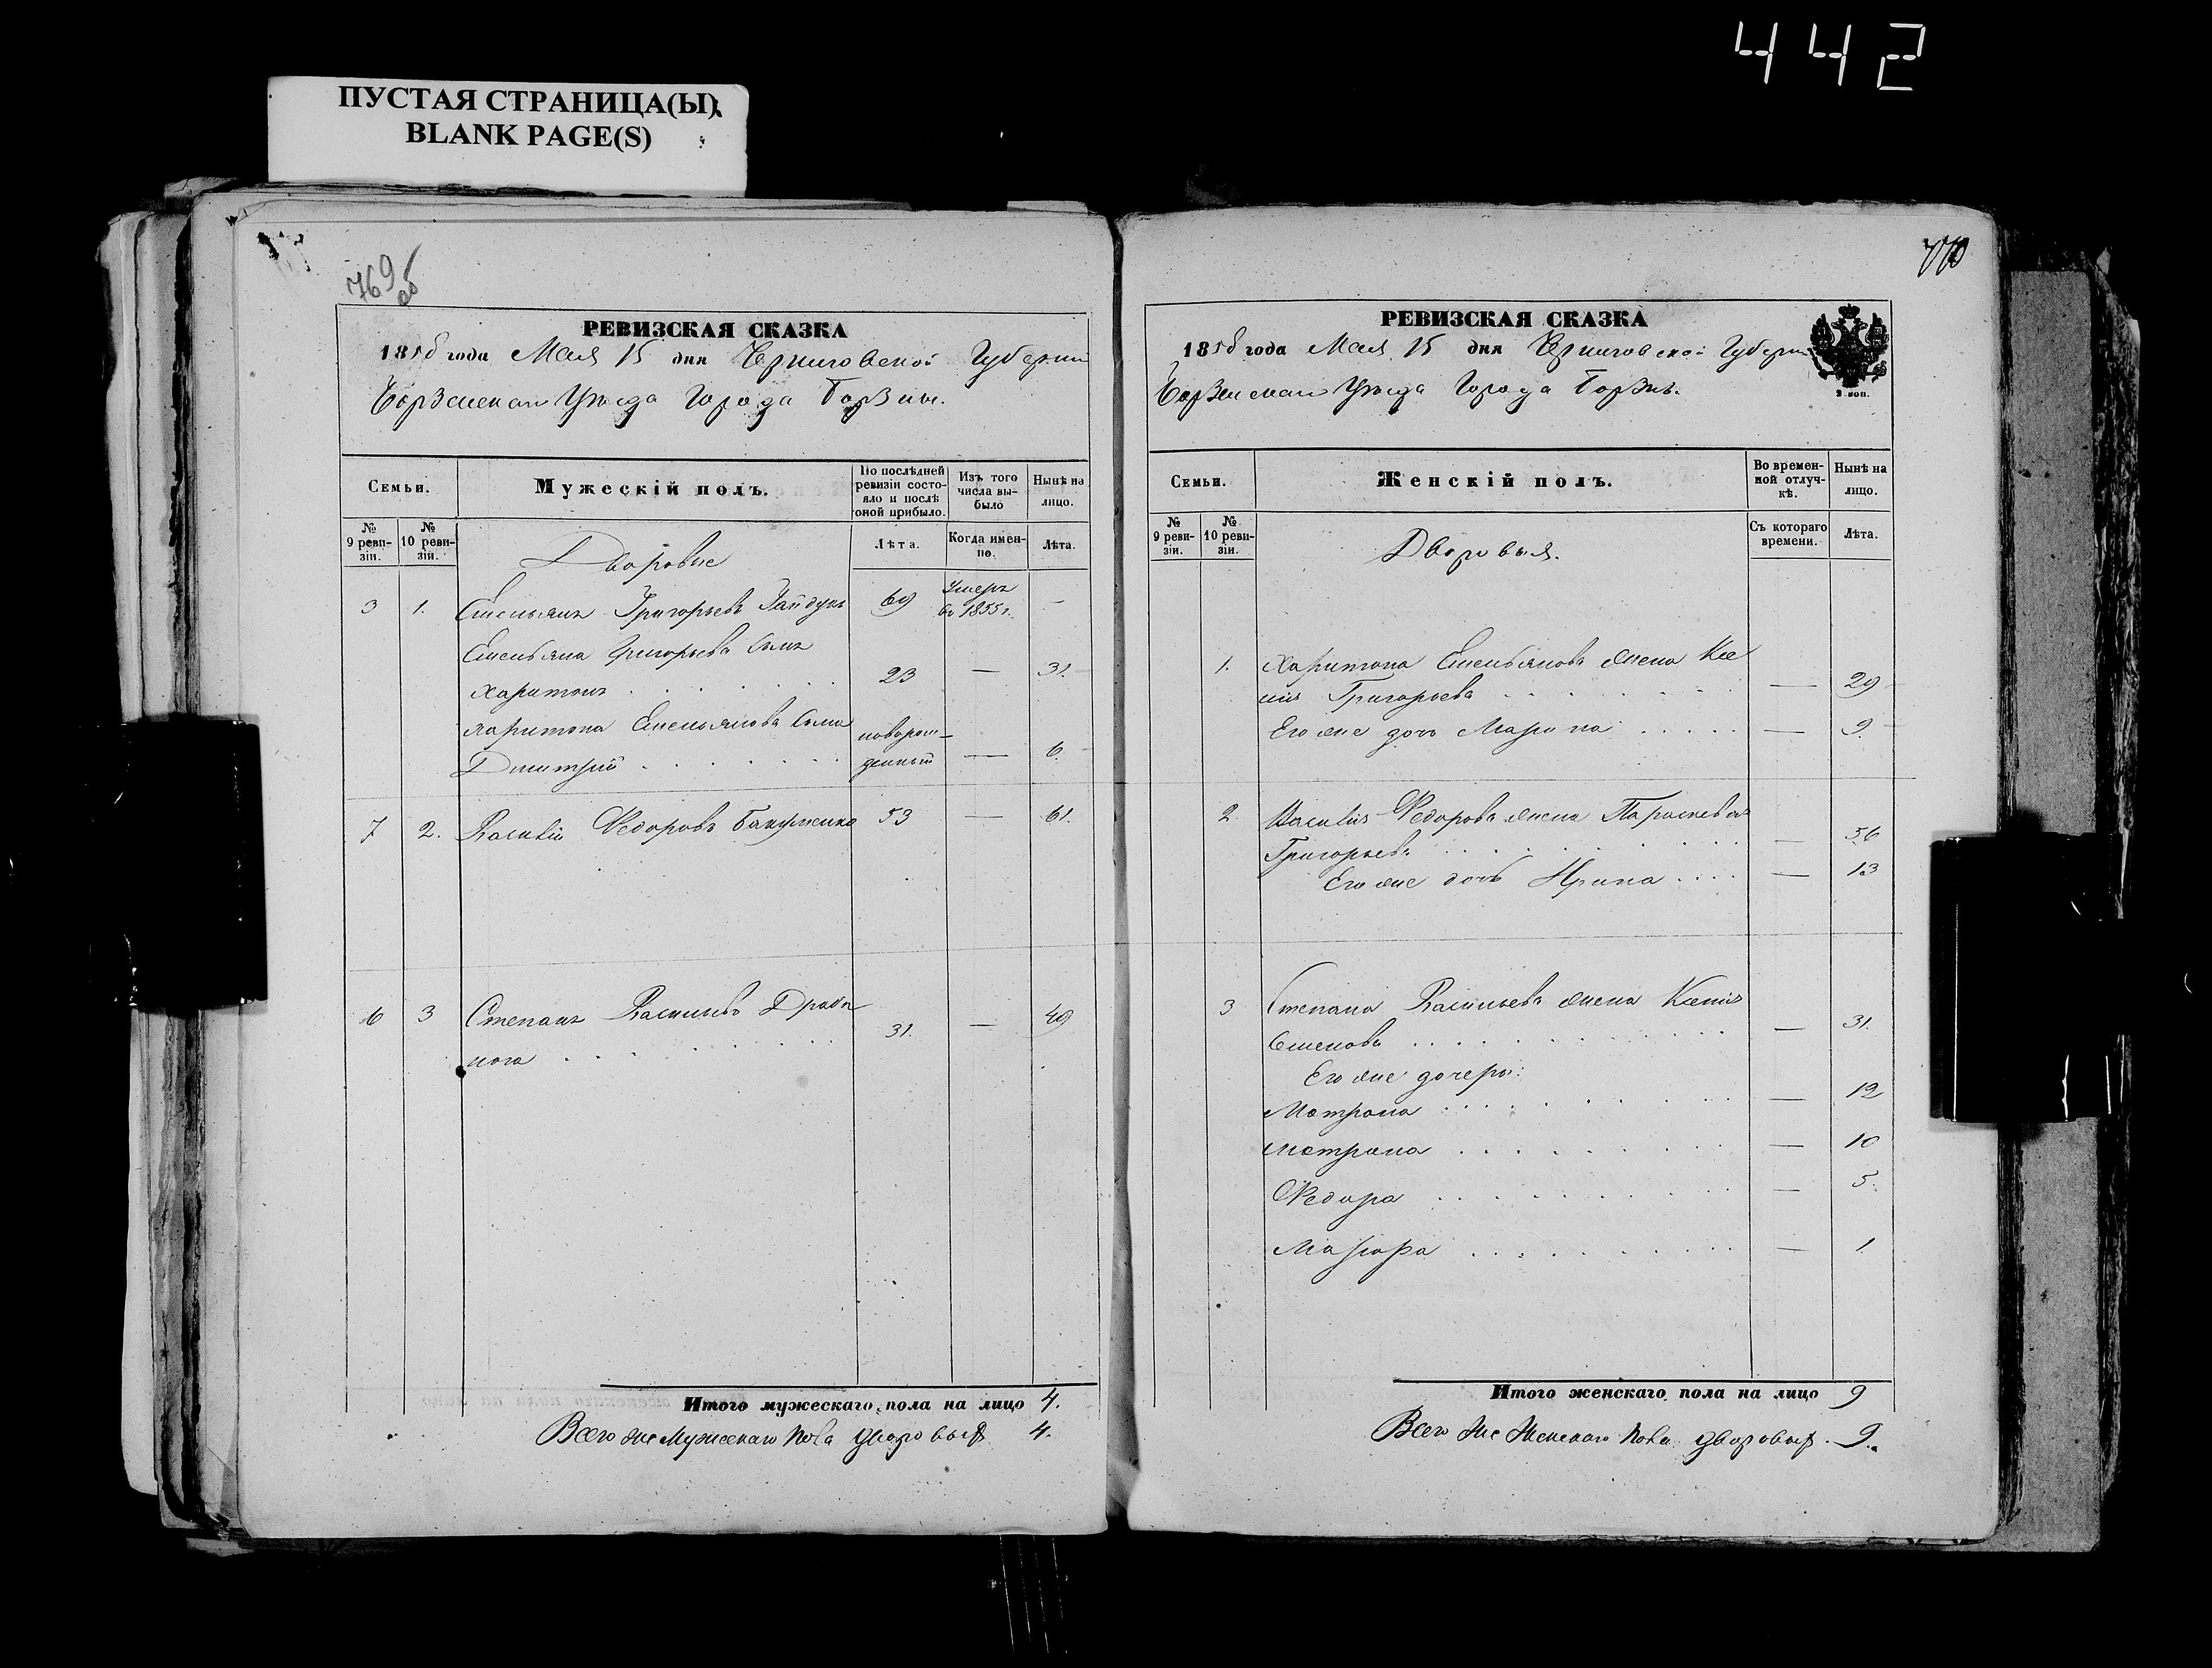 442
ПУСТАЯ СТРАНИЦА(Ы)
BLANK PAGE(S)
769 об
РЕВИЗСКАЯ СКАЗКА
1858 года Мая 15 дня Черниговской Губернии
Борзенскаго Уѣзда Города Борзны.
Семьи.
Мужескій полъ.
По послѣдней ревизіи состояло и послѣ оной прибыло.
Изъ того числа выбыло
Нынѣ на лицо.
№ 9 ревизіи.
№ 10 ревизіи.
Лѣта.
Когда именно.
Лѣта.
Дворовые
3 1. Емельянъ Григорьевъ Гайдукъ 69 Умеръ въ 1855 г. —
Емельяна Григорьева сынъ
Харитонъ 23 — 31.
Харитона Емельянова сынъ новорож-
Дмитрій денный — 6.
7 2. Василій Федоровъ 53 — 61.
6 3 Степанъ Васильевъ
31. — 49
Итого мужескаго пола на лицо 4.
Всего же Мужескаго пола дворовыхъ 4.
770
РЕВИЗСКАЯ СКАЗКА
1858 года Мая 15 дня Черниговской Губерніи
Борзенскаго Уѣзда Города Борзны.
2 коп.
Семьи.
Женскій полъ.
Во временной отлучкѣ.
Нынѣ на лицо.
№ 9 ревизіи.
№ 10 ревизіи.
Съ котораго времени.
Лѣта.
Дворовыя.
1. Харитона Емельянова жена Ксе
нія Григорьева — 29
Его же дочь Марина — 9.
2. Василія Федорова жена Параскевія
Григорьева — 56
Его же дочь Ирина — 13
3 Степана Васильева жена Ксенія
— 31.
Его же дочери:
Мотрона — 12
Мотрона — 10
Федора — 5.
— 1.
Итого женскаго пола на лицо 9
Всего же Женскаго пола дворовыхъ. 9.